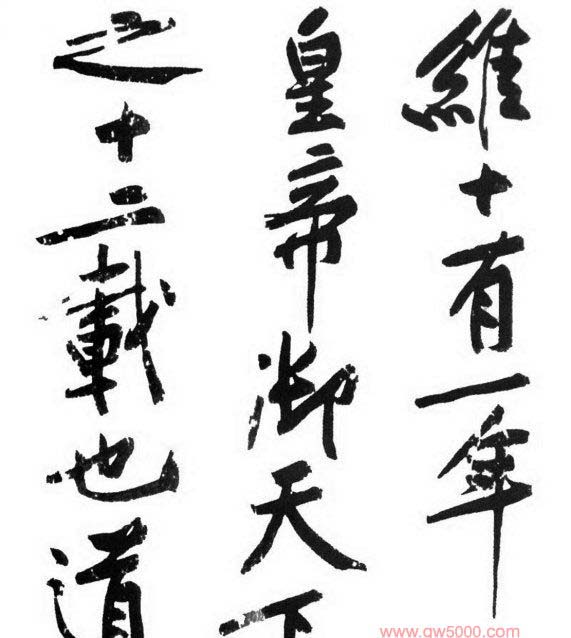 維十有一年
皇帝御天下
之十二載也道
www.qw5000.com